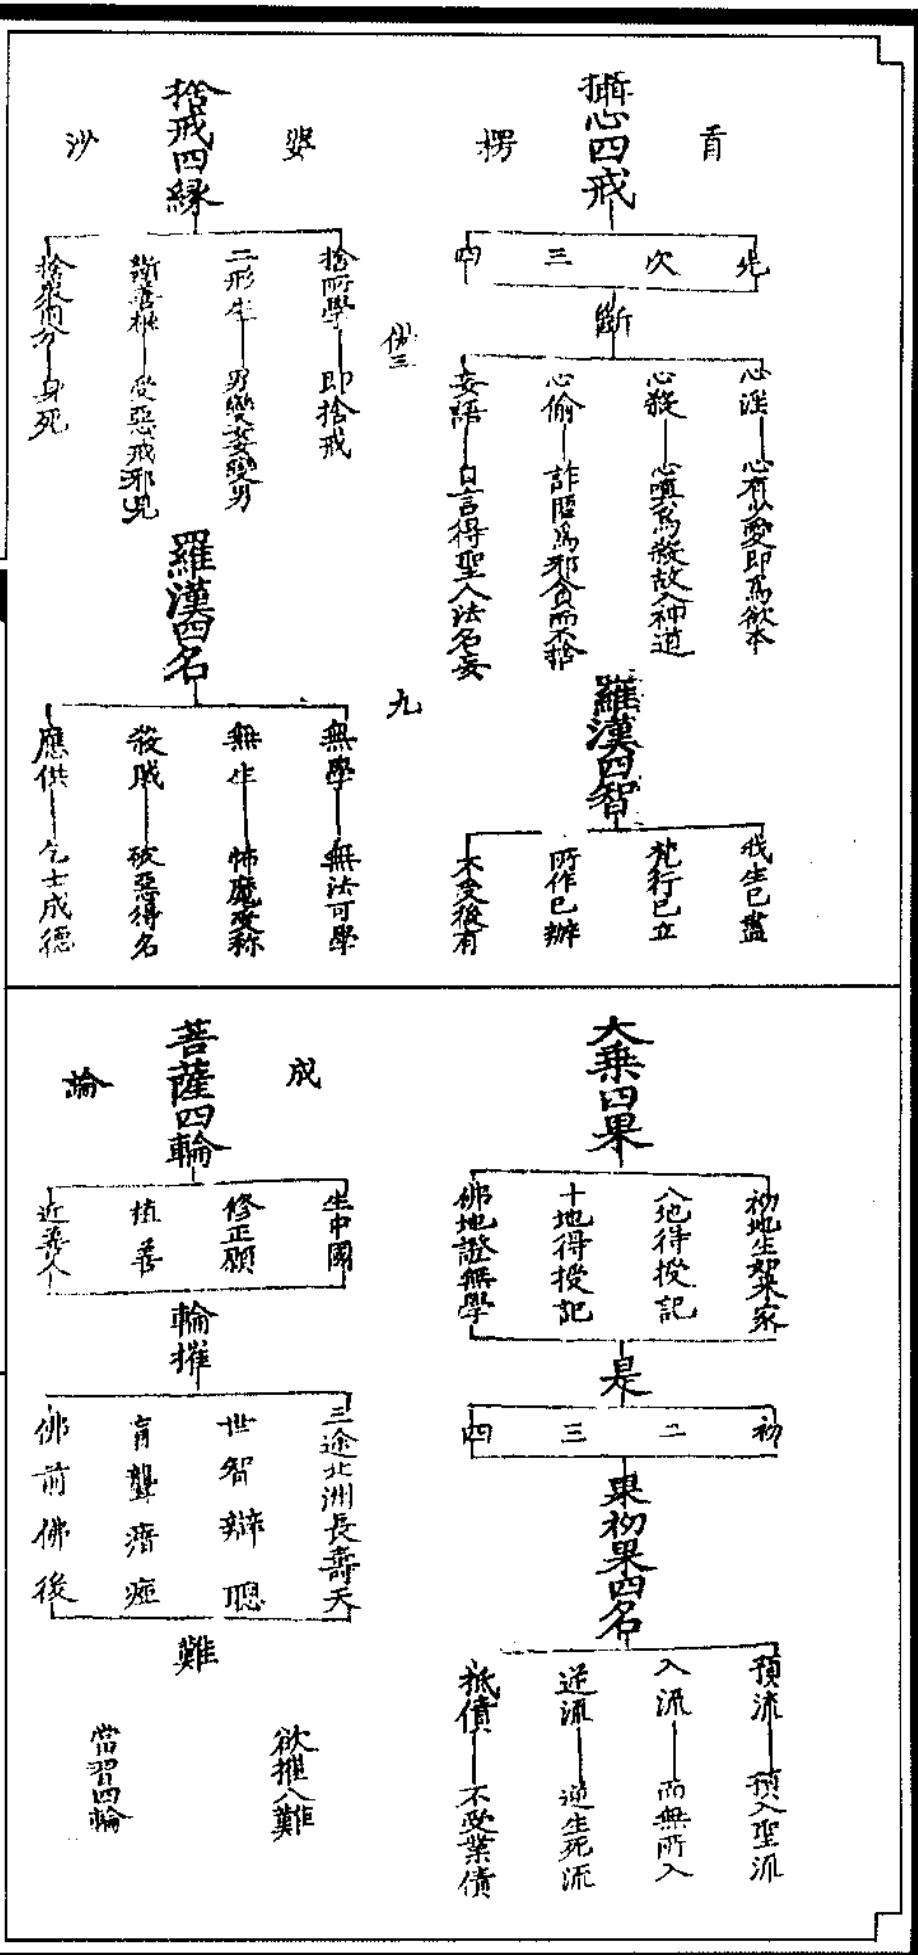 攝心四戒
首
楞
先
次
三
四
斷
心婬
心有少愛即為欲本
心殺
心嗔為殺故入神道
心偷
詐隱為邪貪而不捨
妄語
自言得聖人法名妄
羅漢四智
我生已盡
梵行已立
所作已辦
不受後有
九
捨戒四緣
婆
沙
捨所學
即捨戒
二形生
男變女女變男
斷善根
受惡戒邪見
捨衆同分
身死
羅漢四名
無學
無法可學
無生
怖魔受称
殺賊
破惡得名
應供
乞士成德
大乘四果
初地生如來家
八地得授記
十地得授記
佛地證無學
是
初
二
三
四
果
初果四名
預流
預入聖流
入流
而無所入
逆流
逆生死流
抵債
不受業債
菩薩四輪
成
論
生中國
修正願
植善
近善人
輪摧
三途北洲長壽天
世智辯聰
盲聾瘖瘂
佛前佛後
難
欲摧八難
當習四輪